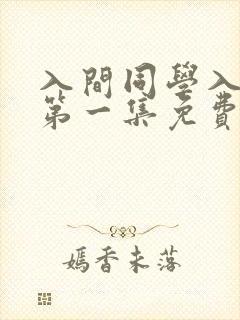 入間同學入
第一集免費
嫣香未落